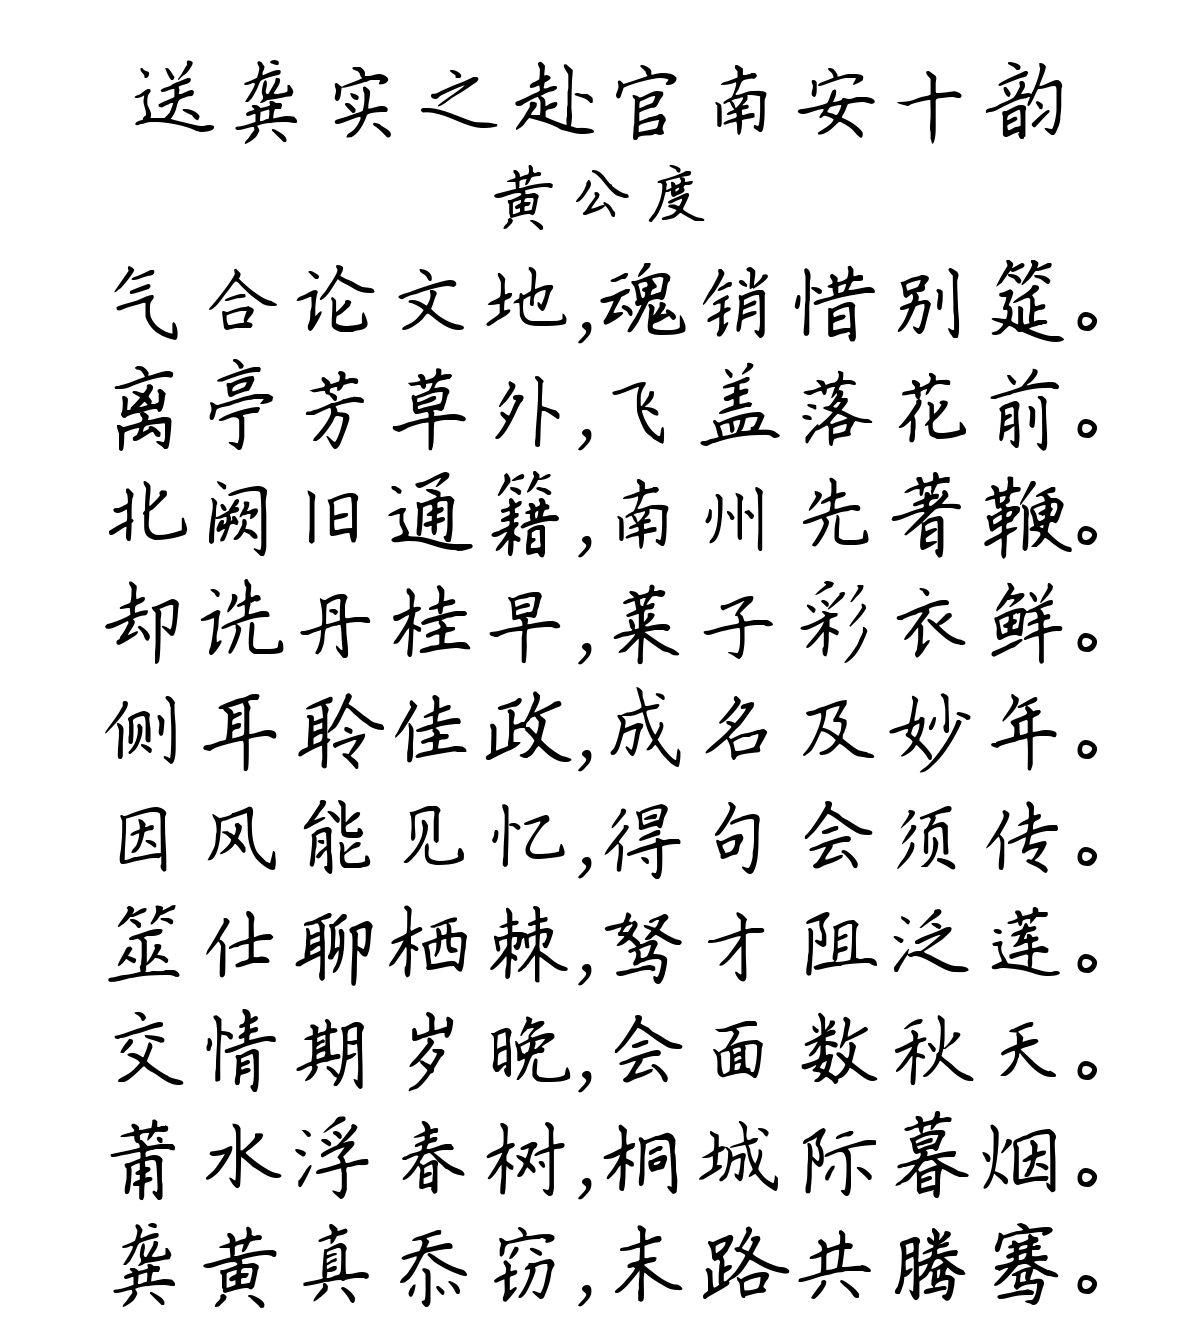 送龚实之赴官南安十韵
黄公度
气合论文地,魂销惜别筵。
离亭芳草外,飞盖落花前。
北阙旧通籍,南州先著鞭。
却诜丹桂早,莱子彩衣鲜。
侧耳聆佳政,成名及妙年。
因风能见忆,得句会须传。
筮仕聊栖棘,驽才阻泛莲。
交情期岁晚,会面数秋天。
莆水浮春树,桐城际暮烟。
龚黄真忝窃,末路共腾骞。